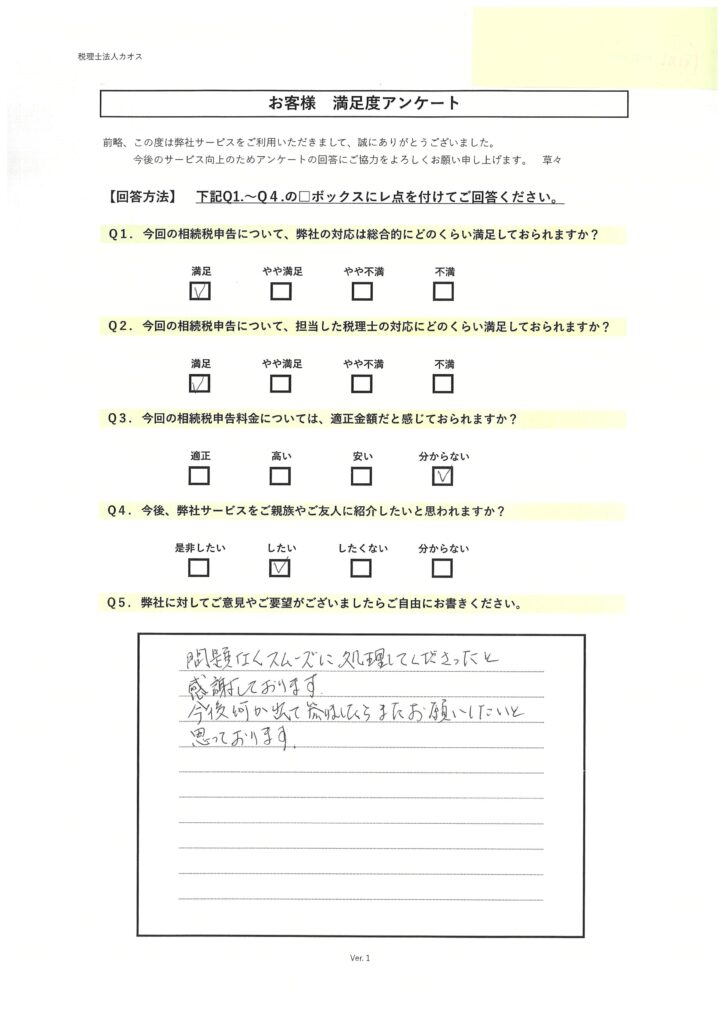 税理士法人カオス
お客様 満足度アンケート
前略、この度は弊社サービスをご利用いただきまして、誠にありがとうございました。
今後のサービス向上のためアンケートの回答にご協力をよろしくお願い申し上げます。 草々
【回答方法】 下記Q1.～Q４.の□ボックスにレ点を付けてご回答ください。
Ｑ１． 今回の相続税申告について、弊社の対応は総合的にどのくらい満足しておられますか？
満足 やや満足 やや不満 不満
Ｑ２． 今回の相続税申告について、担当した税理士の対応にどのくらい満足しておられますか？
満足 やや満足 やや不満 不満
Ｑ３． 今回の相続税申告料金については、適正金額だと感じておられますか？
適正 高い 安い 分からない
Ｑ４． 今後、弊社サービスをご親族やご友人に紹介したいと思われますか？
是非したい したい したくない 分からない
Ｑ５． 弊社に対してご意見やご要望がございましたらご自由にお書きください。
問題なくスムーズに処理してくださったと
感謝しております.
今後何か出て参りましたらまたお願いしたいと
思っております.
Ver. 1